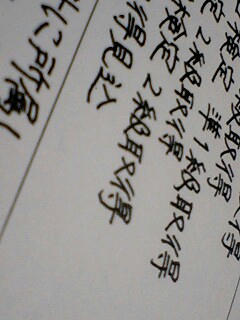 取得
検定 2級取得
検定 準1級取得
検定 2級取得
得見込
に所属